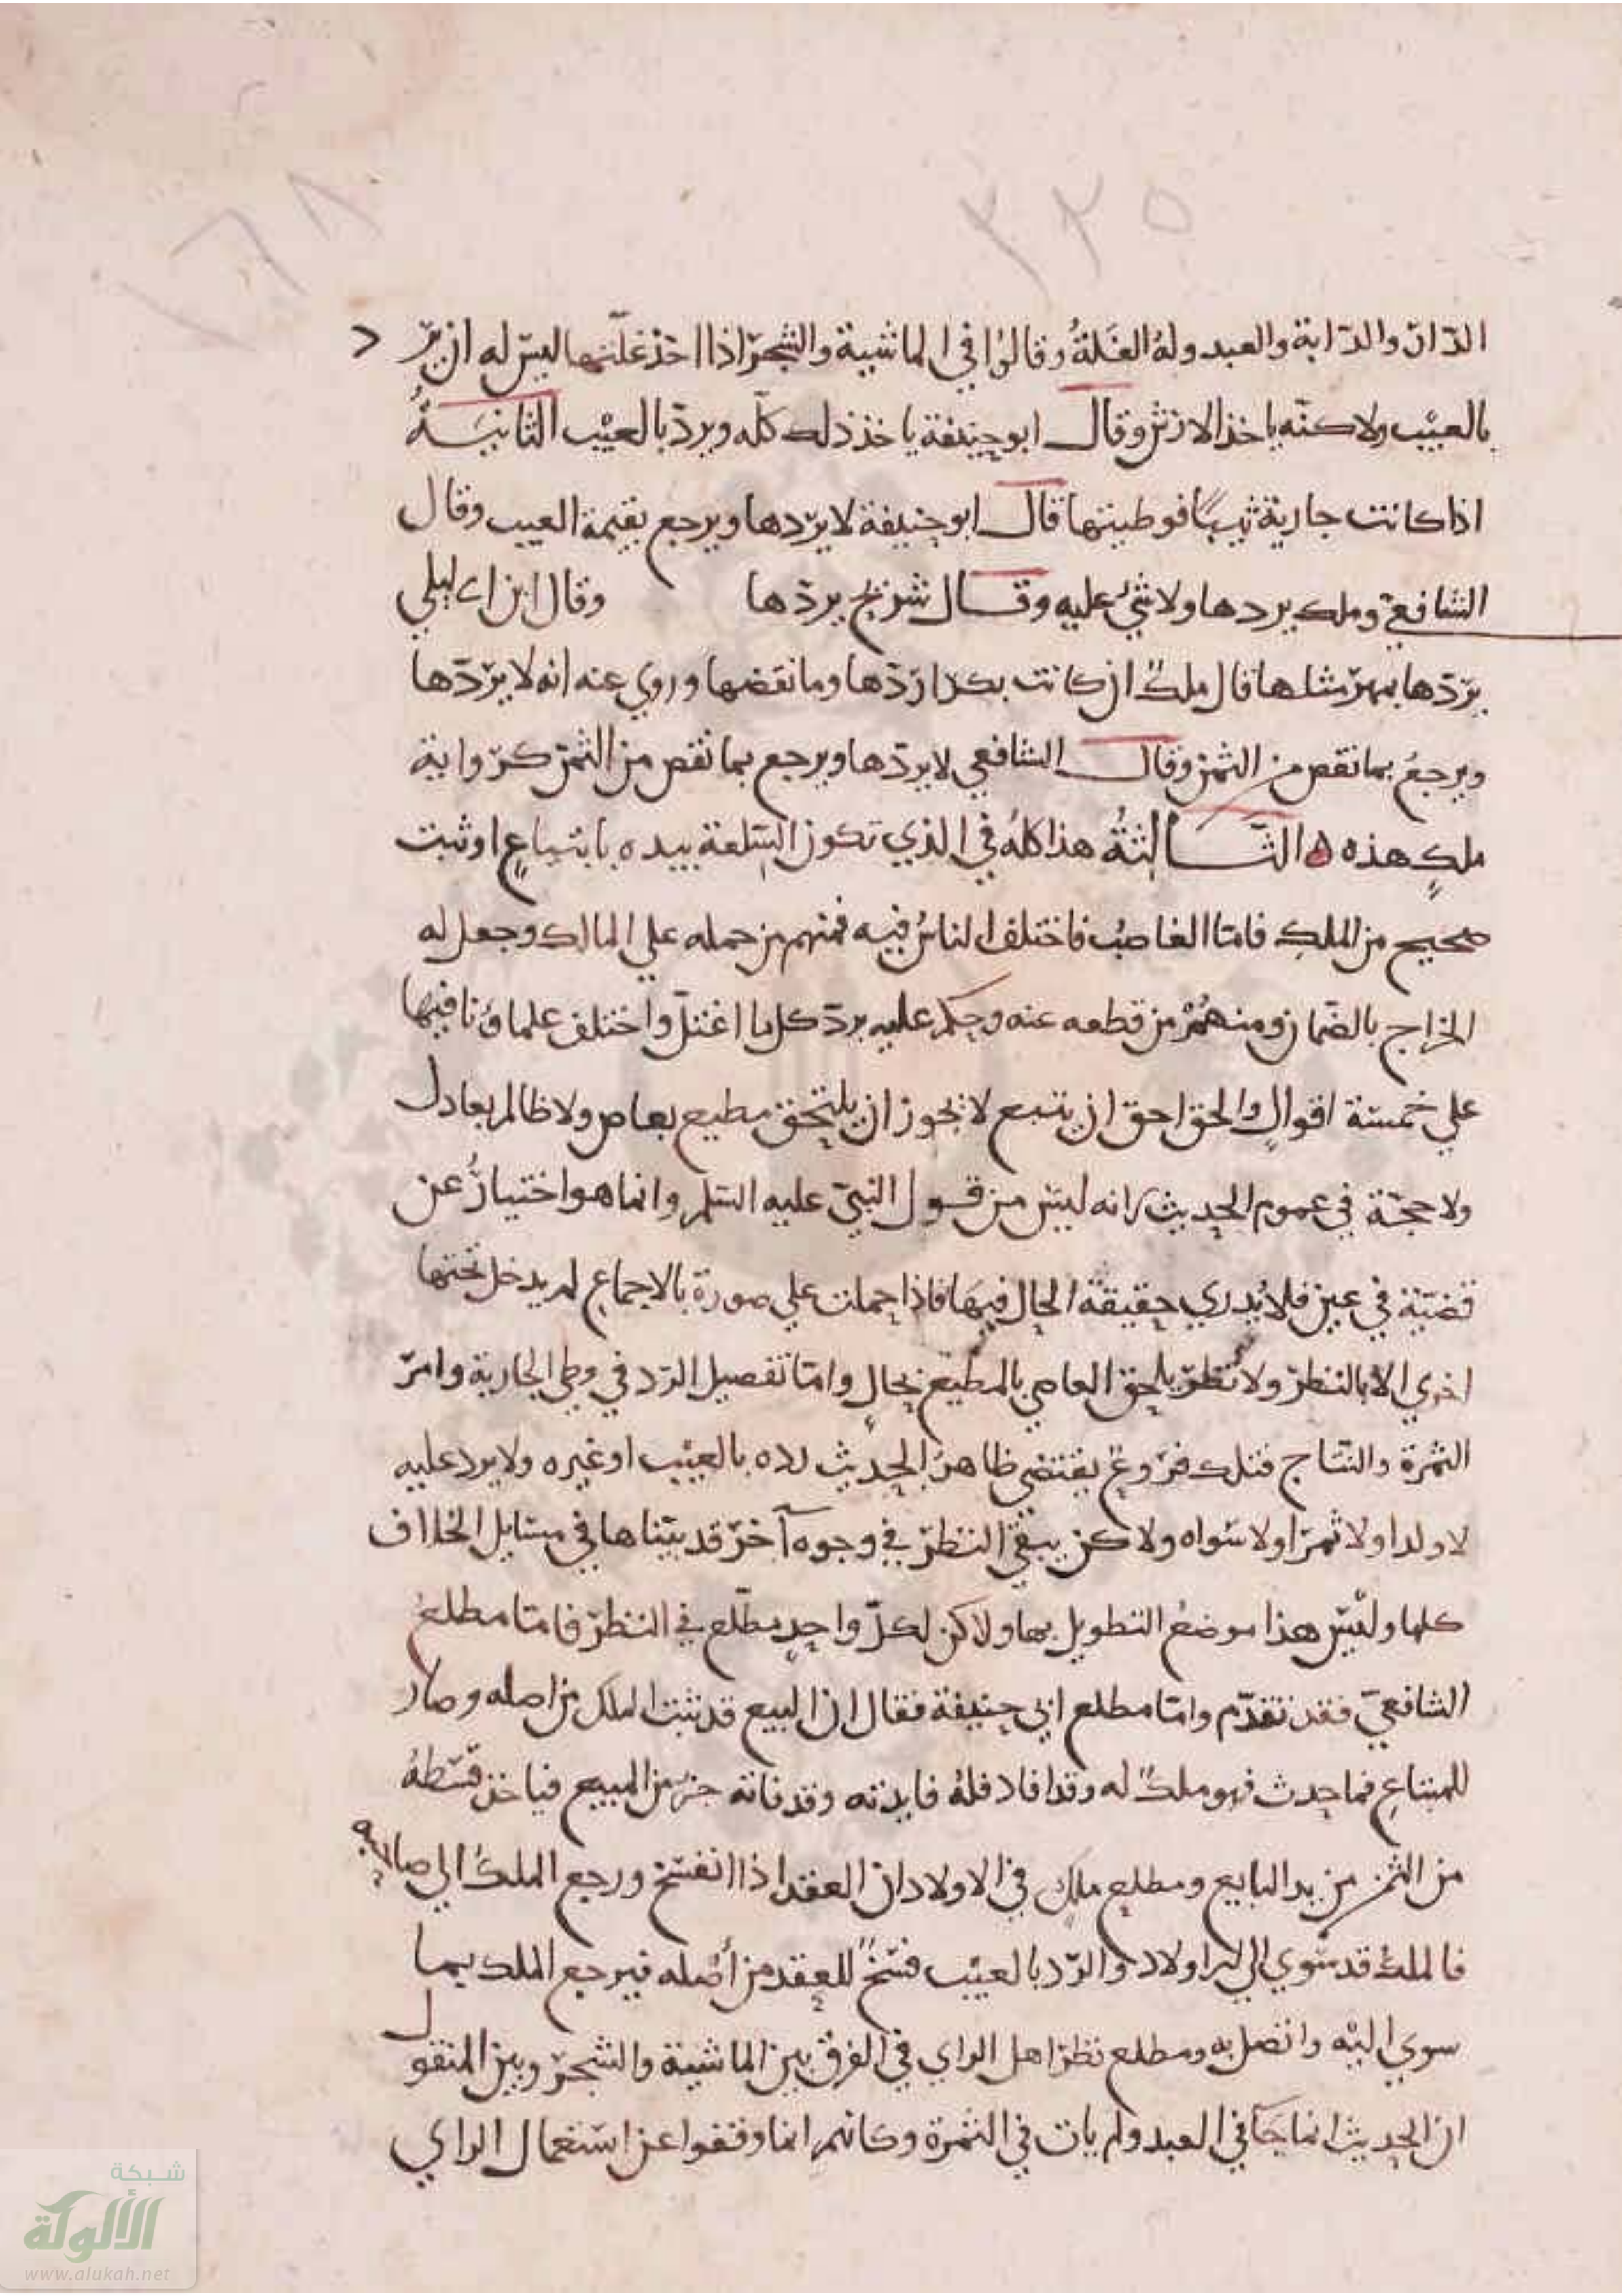 ١٦٨
٣٣٥
الدّار والدّابة والعبد ولهُ الغَلةُ وقالوُا في الماشية والشجر اذا اخذ غلّتها ليس له ان يرد
بالعيْب ولاكنّه ياخذ الارش وقال ابو حنيفة ياخذ ذلك كلّه ويردّ بالعيْب الثانيـةُ
اذا كانت جارية ثيبًا فوطيتها قال ابو حنيفة لا يرّدها ويرجع بقيمة العيب وقال
الشافعيّ وملك يردها ولا شيْ عليه وقـال شريح يردّها وقال ابن ابي ليلي
يردّها بمهر مثلها قال ملكٌ ان كانت بكرا ردّها وما نقصها وروي عنه انه لا يردّها
ويرجعُ بما نقص من الثمن وقال الشافعي لا يردّها ويرجع بما نقص من الثمن كرواية
ملكٍ هذه ه الثـالثةُ هذا كلهُ في الذي تكون السّلعة بيده بابتياعٍ او ثبت
صحيح من الملكِ فامّا الغاصبُ فاختلف الناسُ فيه فمنهم من حمله علي المالك وجعل له
الخراج بالضمان ومنهُمْ من قطعه عنه وحكم عليه بردّ كل ما اغتلّ واختلف علماؤنا فيها
علي خمسة اقوالٍ والحق احق ان يتبع لا يجوز ان يلتحق مطيع بعاص ولا ظالم بعادل
ولا حجّة في عموم الحديث انه ليس من قـول النبيّ عليه السّلم وانما هو اختيارُ عن
قضيّة في عين فلا يُدري حقيقة الحال فيهَا فاذا حملت علي صورة بالاجماعِ لم يدخل تحتها
اخري الا بالنظر ولا نظر يلحق العاصي بالمطيع بحالٍ وامّا تفصيل الرّد في وطي الجارية وامرّ
الثمرة والنتاج فتلك فروع يقتضي ظاهرُ الحديث رده بالعيْب او غيره ولا يرد عليه
لا ولدا ولا ثمرا ولا سواه ولاكن يبقي النظر في وجوه آخر قد بيّناها في مسايل الخلاف
كلها وليْس هذا موضعُ التطويل بها ولاكن لكلّ واحدٍ مطّلع في النظر فامّا مطلعُ
الشافعيّ فقد تقدّم وامّا مطلع ابي حنيفة فقال ان البيع قد ثبت الملك من اصله وصار
للمبتاعِ فما حدث فهو ملكٌ له وقد افاد فلهُ فايدته وقد فاته جزء من المبيع فياخذ قسْطهُ
من الثمن من يد البايع ومطلع ملكٍ في الاولاد ان العقد اذا انفسَخ ورجع الملكُ الي صاحبه
فالملكُ قد سوي الي الاولاد والرّد بالعيْب فسْخٌ للعقد من أصْله فيرجع الملك بما
سوي اليْه واتصل به ومطلع نظر اهل الراي في الفرق بين الماشية والشجر وبين المنقول
ان الحديث انما جَا في العبد ولم يات في الثمرة وكانهم انما وقفوا عن اسْتعمال الراي
شبكة
الألوكة
www.alukah.net